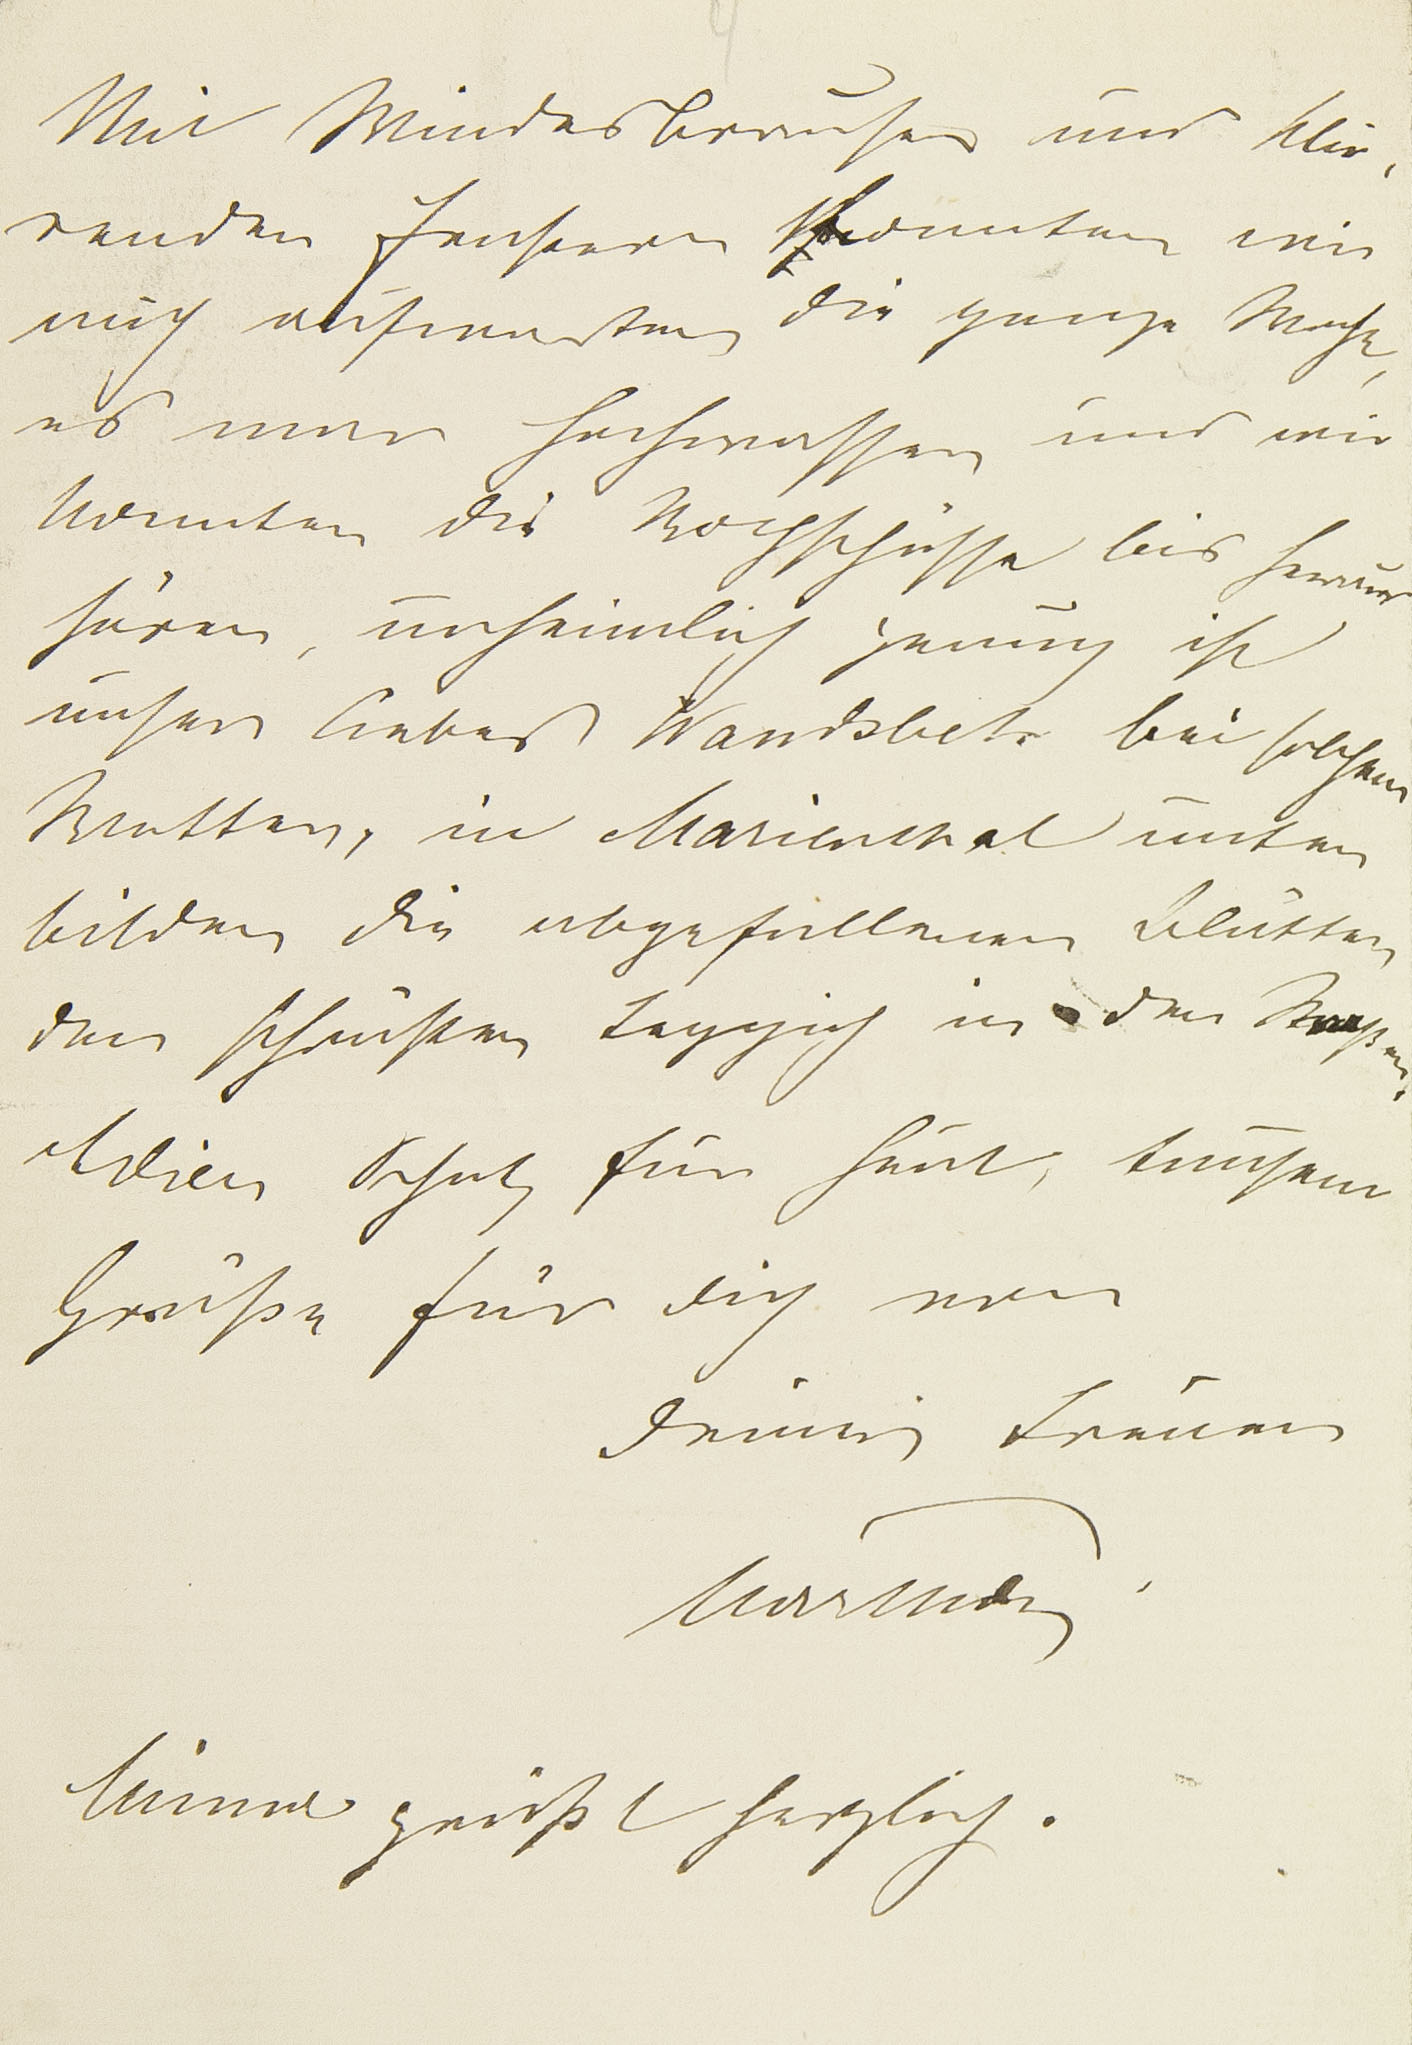 4
Mit Windesbrausen und klir,
renden Fenstern konnten wir
auch aufwarten die ganze Woche,
es war Hochwasser und wir
konnten die Nothschüsse bis heraus
hören, unheimlich genug ist
unser liebes Wandsbek bei solchem
Wetter, in Marienthal unten
bilden die abgefallenen Blätter
den schönsten Teppich in den Straßen.
Adieu Schatz für heut, tausend
Grüße für dich von
Deiner treuen

Minna grüßt herzlich.